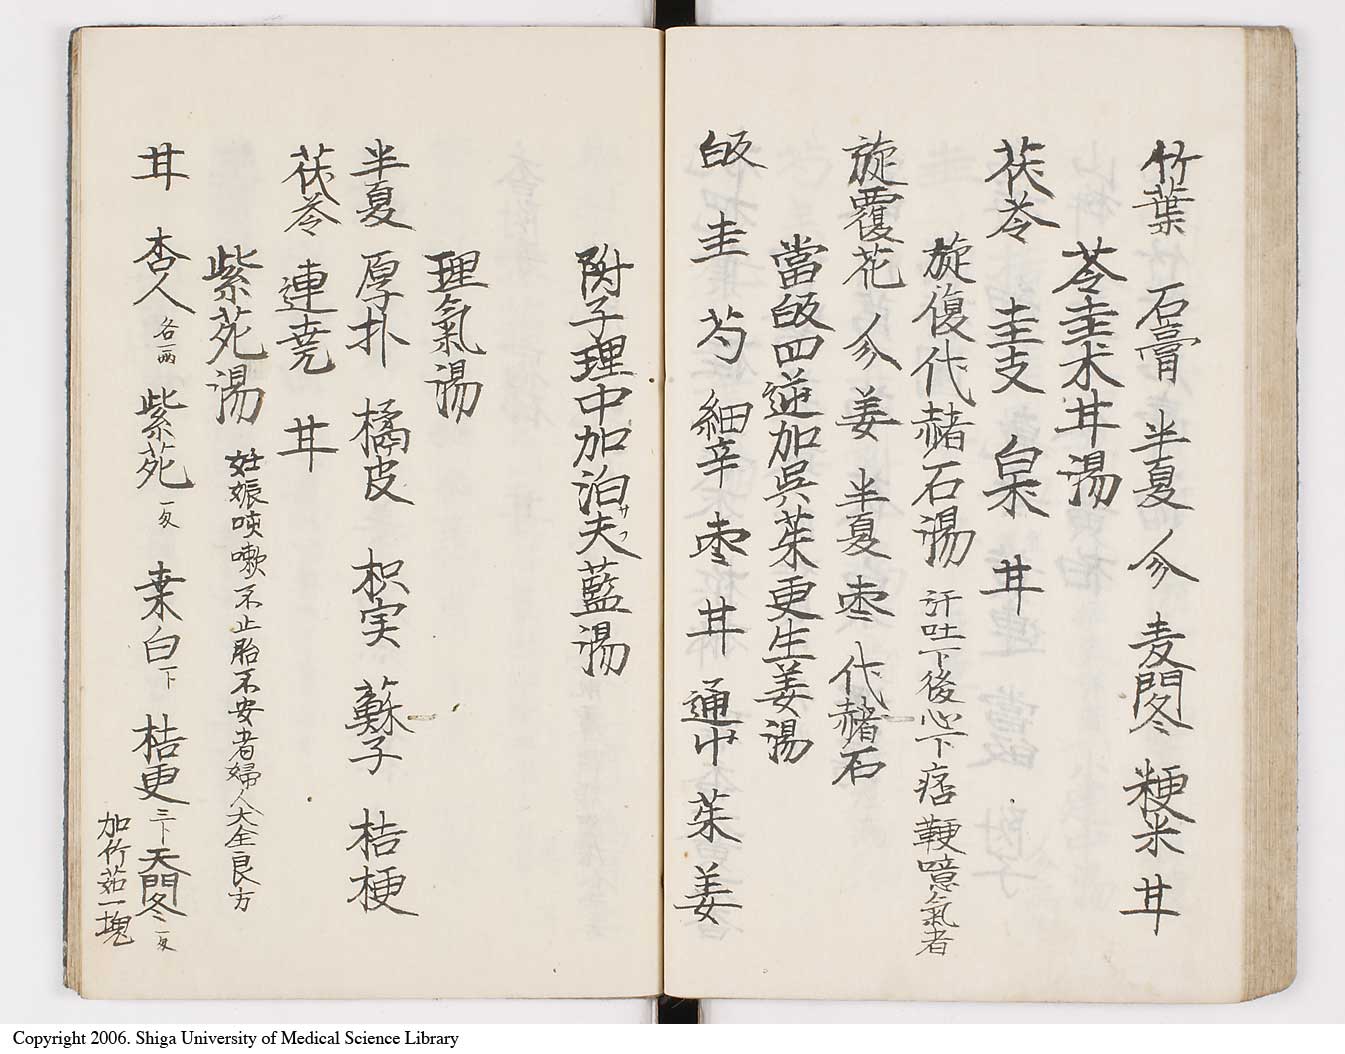 竹葉 石膏 半夏 参 麦門冬 粳米 甘
苓圭朮甘湯
茯苓 圭支 白朮 甘
旋復代赭石湯 汗吐下後心下痞鞕噫氣者
旋覆花 参 姜 半夏 枣 代赭石
當皈四逆加呉茱更生姜湯
皈 圭 芍 細辛 枣 甘 通中 茱 姜
附子理中加泊夫藍湯
サフ
理氣湯
半夏 厚朴 橘皮 枳実 蘇子 桔梗
茯苓 連尭 甘
紫苑湯 妊娠咳嗽不止胎不安者婦人大全良方
甘 杏人 各二両 紫苑 桒白 下 桔更 三下 天門冬
加竹茹一塊
Copyright 2006. Shiga University of Medical Science Library